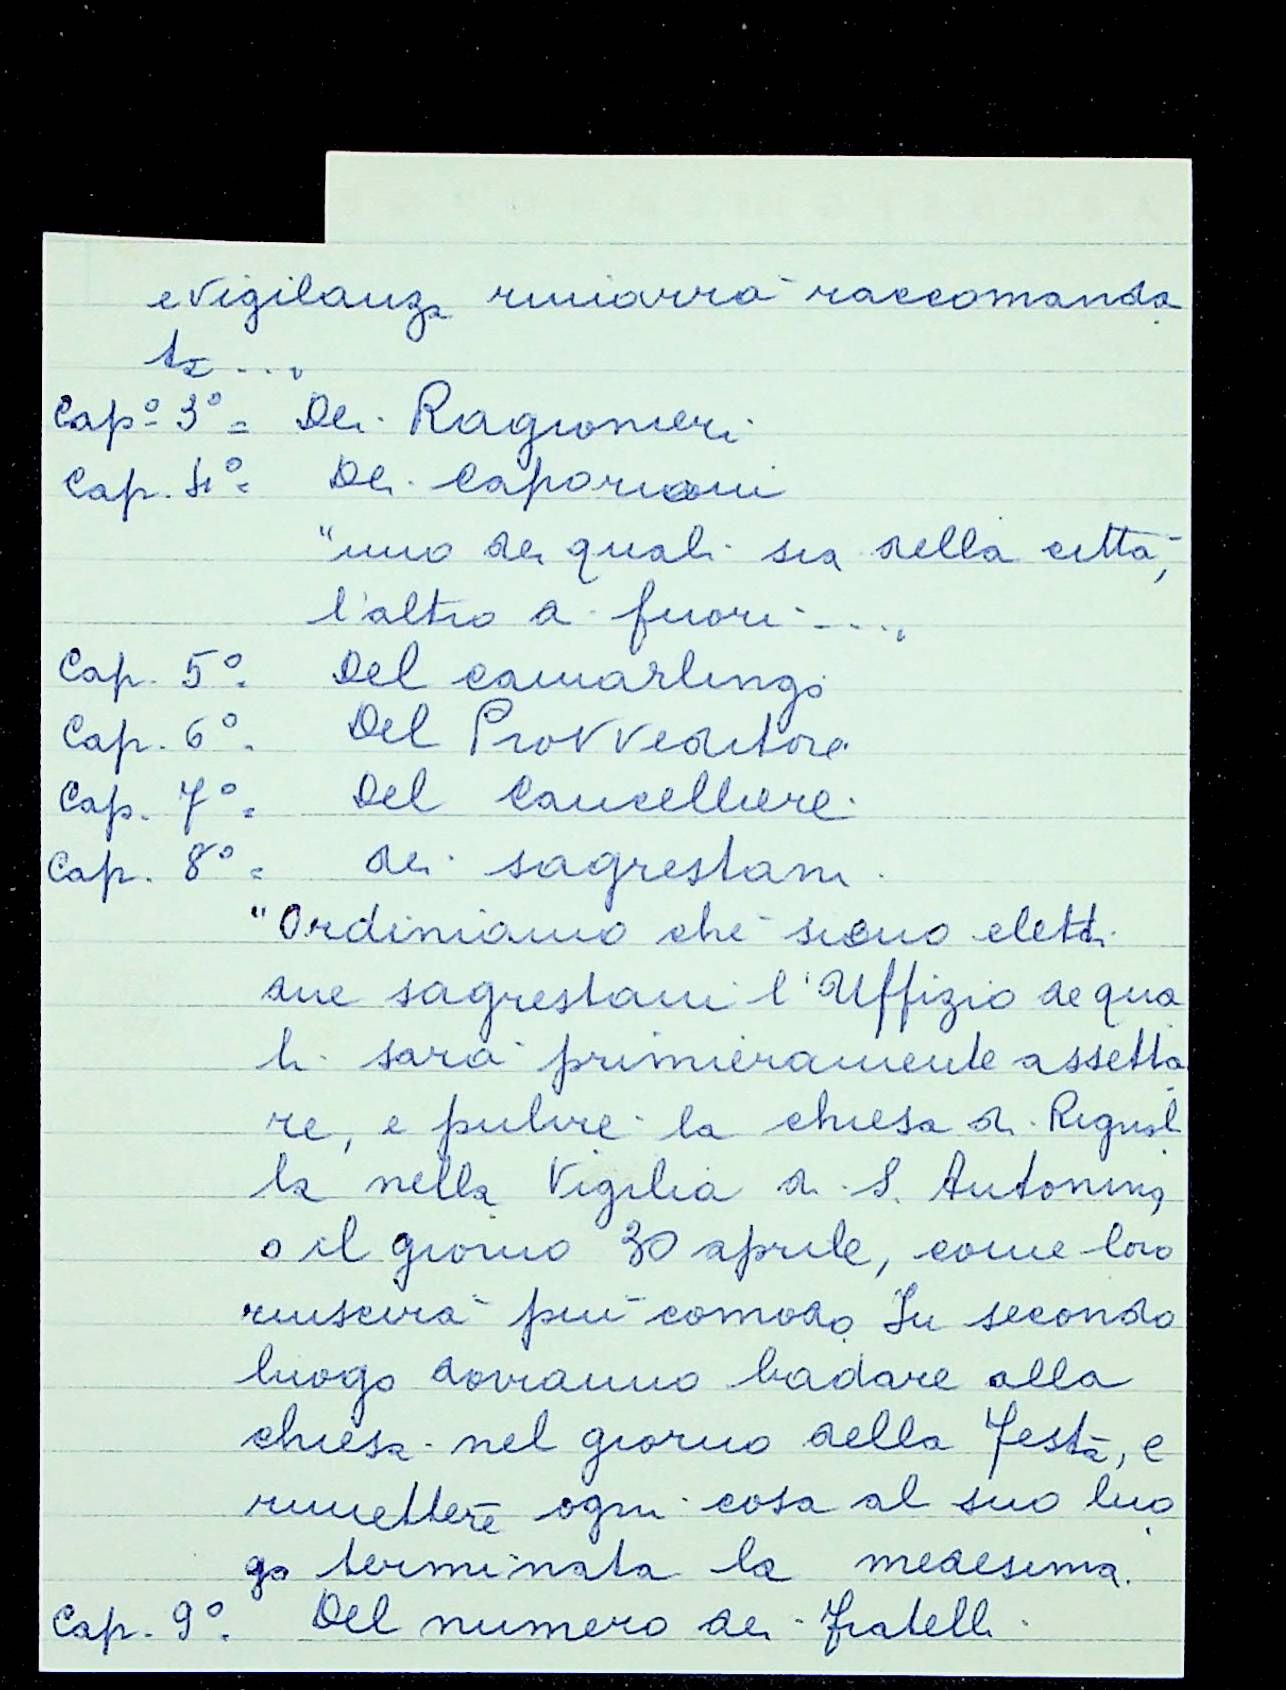 e vigilanza rimarrà raccomanda
ta ....
Cap° 3° = Dei Ragionieri
Cap. 4° = Dei Caporioni
"uno dei quali sia della città,
l'altro di fuori ....
Cap. 5° = Del camarlingo
Cap. 6° = Del Provveditore
Cap. 7° = Del Cancelliere
Cap. 8° = dei sagrestani
"Ordiniamo che sieno eletti
due sagrestani l'Uffizio de qua
li sarà primieramente assetta
re, e pulire la chiesa di Rignal
la nella Vigilia di S. Antonino,
o il giorno 30 aprile, come loro
riuscirà più comodo. In secondo
luogo dovranno badare alla
chiesa nel giorno della Festa, e
rimettere ogni cosa al suo luo
go terminata la medesima.
Cap. 9° = Del numero dei Fratelli